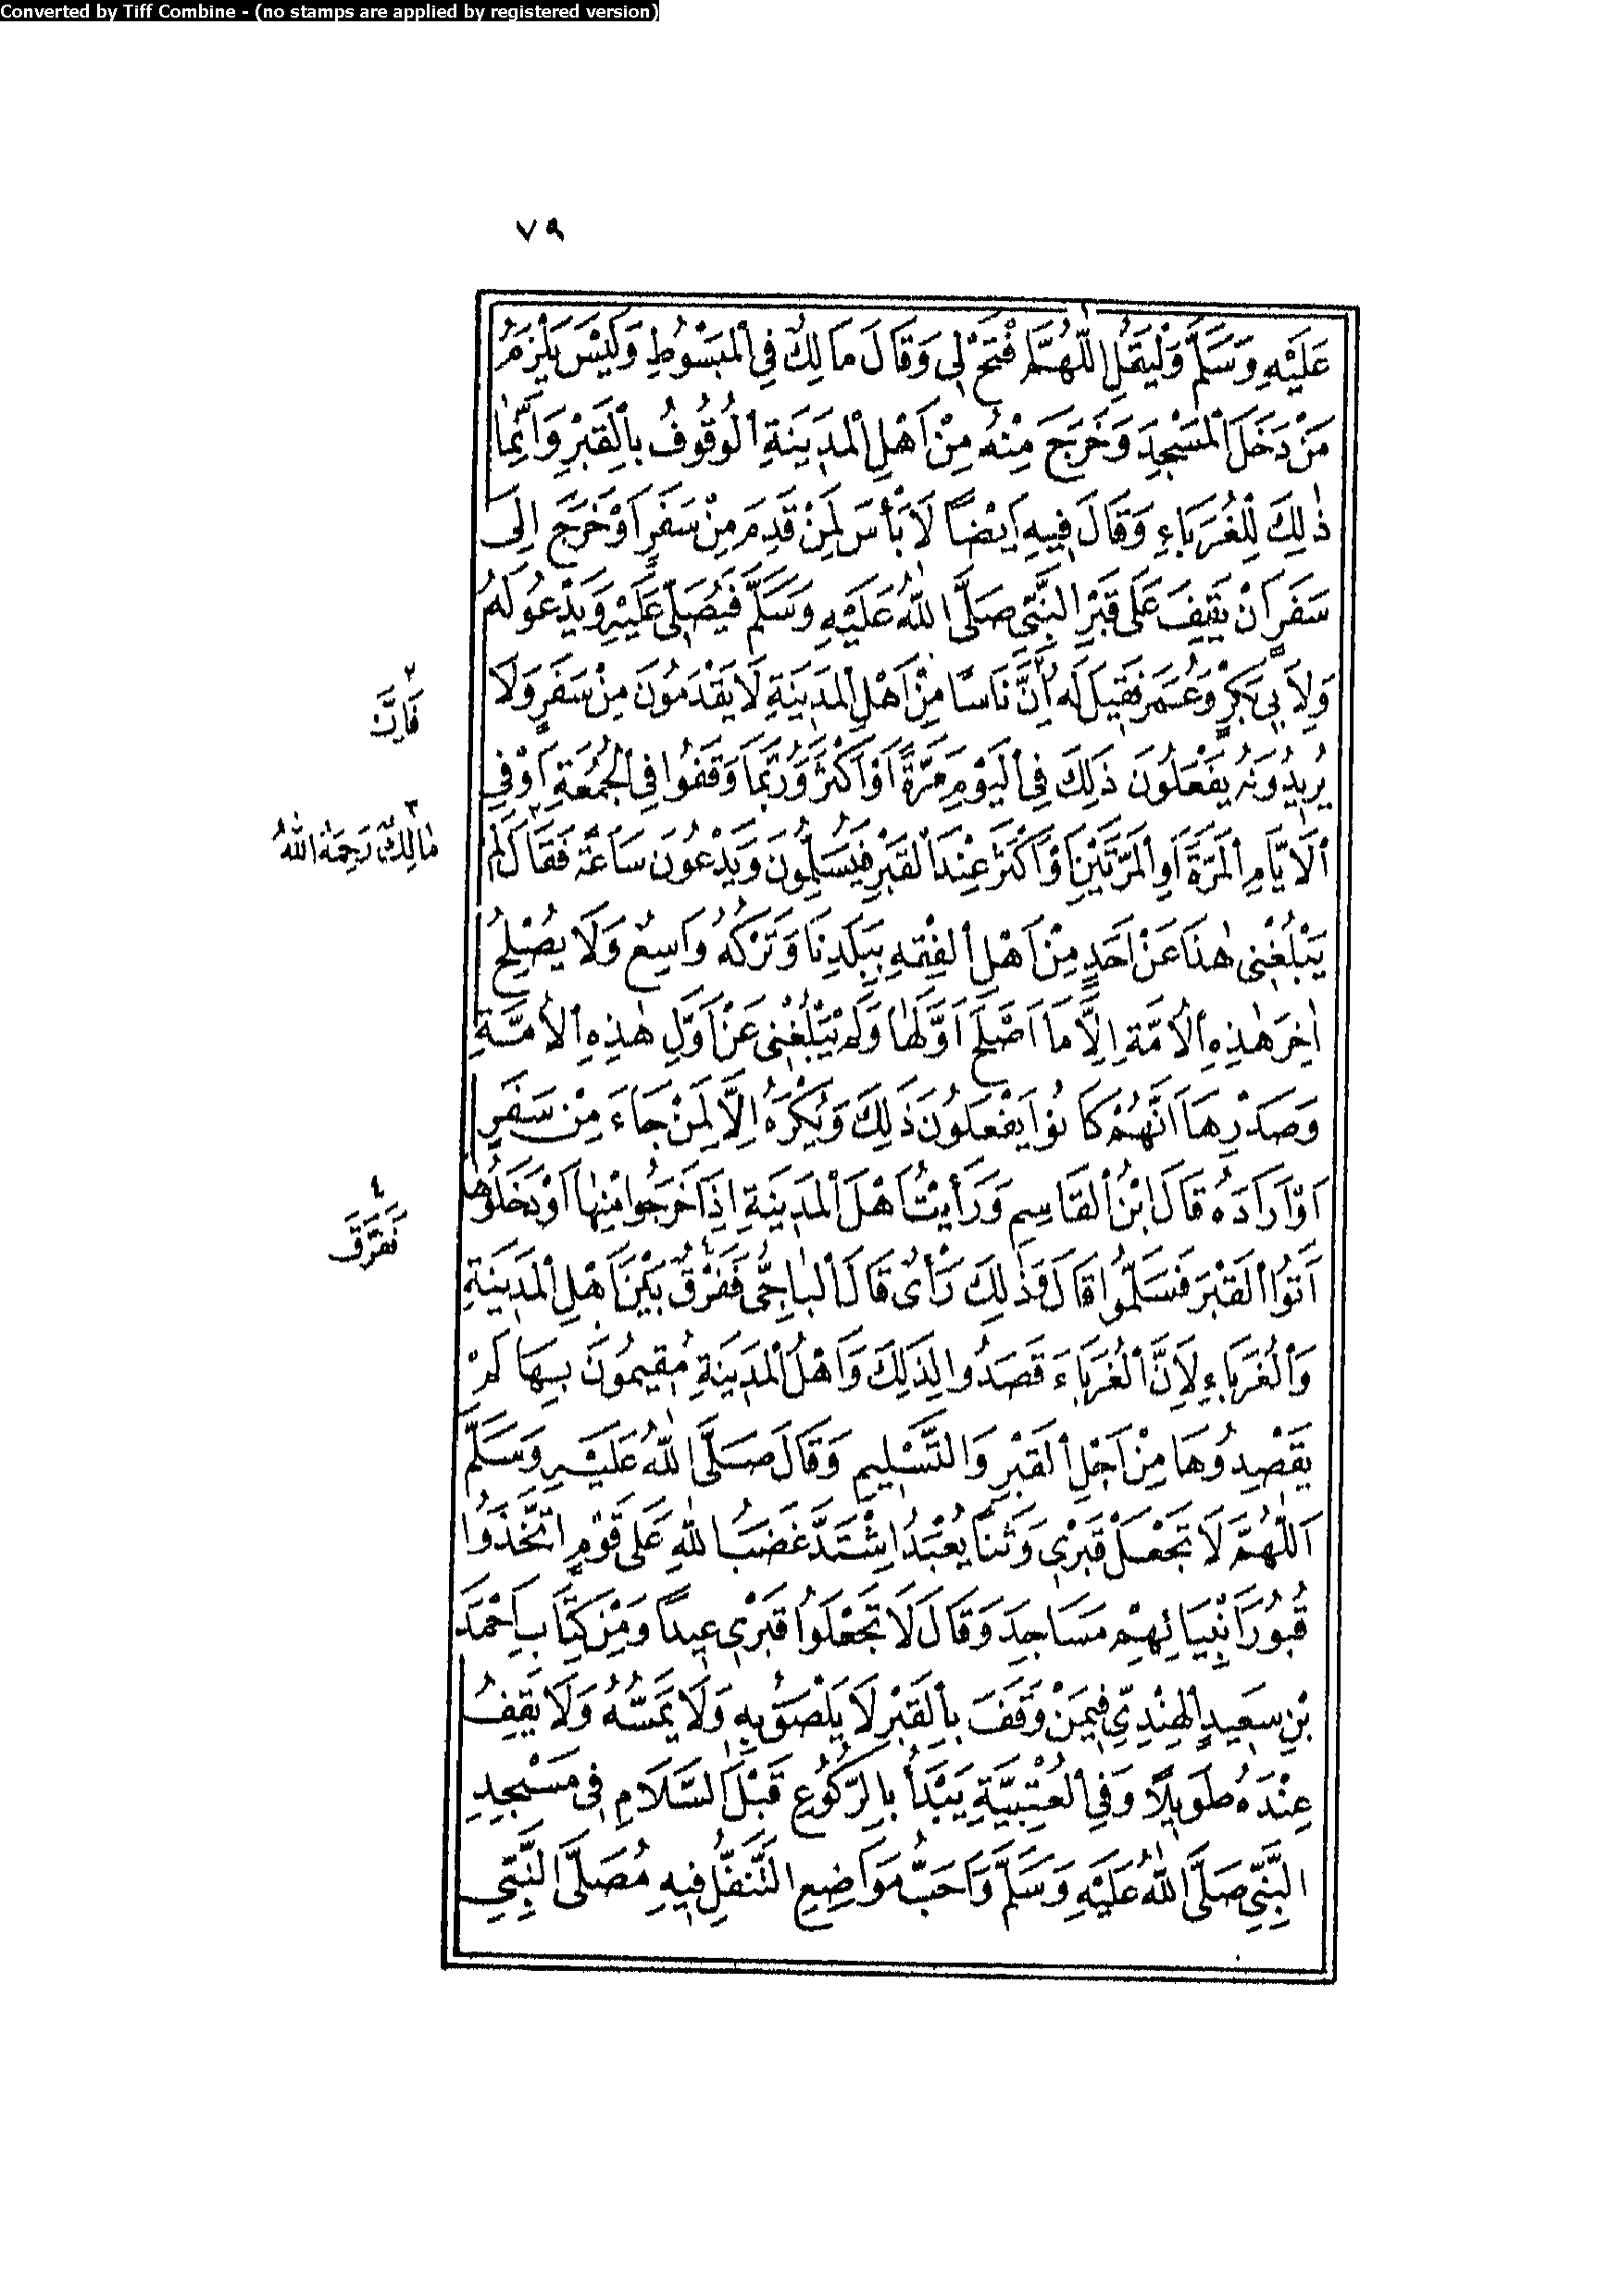 Converted by Tiff Combine - (no stamps are applied by registered version)
٧٩
عَلَيْهِ وَسَلَّمَ وَلْيَقُلِ اللّٰهُمَّ افْتَحْ لِى وَقَالَ مَالِكٌ فِى الْمَبْسُوطِ وَلَيْسَ يَلْزَمُ
مَنْ دَخَلَ الْمَسْجِدَ وَخَرَجَ مِنْهُ مِنْ اَهْلِ الْمَدِينَةِ الْوُقُوفُ بِالْقَبْرِ وَاِنَّمَا
ذٰلِكَ لِلْغُرَبَاءِ وَقَالَ فِيهِ اَيْضًا لَا بَأْسَ لِمَنْ قَدِمَ مِنْ سَفَرٍ اَوْ خَرَجَ اِلَى
سَفَرٍ اَنْ يَقِفَ عَلَى قَبْرِ النَّبِىِّ صَلَّى اللّٰهُ عَلَيْهِ وَسَلَّمَ فَيُصَلِّىَ عَلَيْهِ وَيَدْعُوَ لَهُ
وَلِاَبِى بَكْرٍ وَعُمَرَ فَقِيلَ لَهُ اِنَّ نَاسًا مِنْ اَهْلِ الْمَدِينَةِ لَا يَقْدَمُونَ مِنْ سَفَرٍ وَلَا
٢
فَاِنَّ
يُرِيدُونَهُ يَفْعَلُونَ ذَلِكَ فِى الْيَوْمِ مَرَّةً اَوْ اَكْثَرَ وَرُبَّمَا وَقَفُوا فِى الْجُمُعَةِ اَوْ فِى
٣
مَالِكٌ رَحِمَهُ اللّٰهُ
الْاَيَّامِ الْمَرَّةَ اَوِ الْمَرَّتَيْنِ اَوْ اَكْثَرَ عِنْدَ الْقَبْرِ فَيُسَلِّمُونَ وَيَدْعُونَ سَاعَةً فَقَالَ لَمْ
يَبْلُغْنِى هٰذَا عَنْ اَحَدٍ مِنْ اَهْلِ الْفِقْهِ بِبَلَدِنَا وَتَرْكُهُ وَاسِعٌ وَلَا يُصْلِحُ
اٰخِرَ هٰذِهِ الْاُمَّةِ اِلَّا مَا اَصْلَحَ اَوَّلَهَا وَلَمْ يَبْلُغْنِى عَنْ اَوَّلِ هٰذِهِ الْاُمَّةِ
وَصَدْرِهَا اَنَّهُمْ كَانُوا يَفْعَلُونَ ذَلِكَ وَيُكْرَهُ اِلَّا لِمَنْ جَاءَ مِنْ سَفَرٍ
اَوْ اَرَادَهُ قَالَ ابْنُ الْقَاسِمِ وَرَأَيْتُ اَهْلَ الْمَدِينَةِ اِذَا خَرَجُوا مِنْهَا اَوْ دَخَلُوهَا
٤
فَفَرَّقَ
اَتَوُا الْقَبْرَ فَسَلَّمُوا قَالَ وَذٰلِكَ رَأْىٌ قَالَ الْبَاجِىُّ فَفَرْقٌ بَيْنَ اَهْلِ الْمَدِينَةِ
وَالْغُرَبَاءِ لِاَنَّ الْغُرَبَاءَ قَصَدُوا لِذَلِكَ وَاَهْلُ الْمَدِينَةِ مُقِيمُونَ بِهَا لَمْ
يَقْصِدُوهَا مِنْ اَجْلِ الْقَبْرِ وَالتَّسْلِيمِ وَقَالَ صَلَّى اللّٰهُ عَلَيْهِ وَسَلَّمَ
اَللّٰهُمَّ لَا تَجْعَلْ قَبْرِى وَثَنًا يُعْبَدُ اشْتَدَّ غَضَبُ اللّٰهِ عَلَى قَوْمٍ اتَّخَذُوا
قُبُورَ اَنْبِيَائِهِمْ مَسَاجِدَ وَقَالَ لَا تَجْعَلُوا قَبْرِى عِيدًا وَمِنْ كِتَابِ اَحْمَدَ
بْنِ سَعِيدٍ الْهِنْدِىِّ فِيمَنْ وَقَفَ بِالْقَبْرِ لَا يَلْصَقُ بِهِ وَلَا يَمَسُّهُ وَلَا يَقِفُ
عِنْدَهُ طَوِيلًا وَفِى الْعُتْبِيَّةِ يَبْدَأُ بِالرُّكُوعِ قَبْلَ السَّلَامِ فِى مَسْجِدِ
النَّبِىِّ صَلَّى اللّٰهُ عَلَيْهِ وَسَلَّمَ وَاَحَبُّ مَوَاضِعِ التَّنَفُّلِ فِيهِ مُصَلَّى النَّبِىِّ